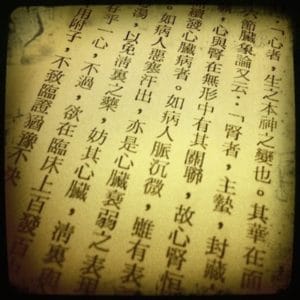 「心者,生之本神之變也。其華在面
臟象論又云:「腎者,主蟄,封藏
心與腎在無形中有其關聯,故心腎恒
續發心臟病者。如病人脈沉微,雖有表
。如病人惡寒汗出,亦是心臟衰弱之表
湯,以免清裏之藥,妨其心臟,清裏與
乎一心,不過,欲在臨床上百發百
用附子,不致臨證猶豫不決